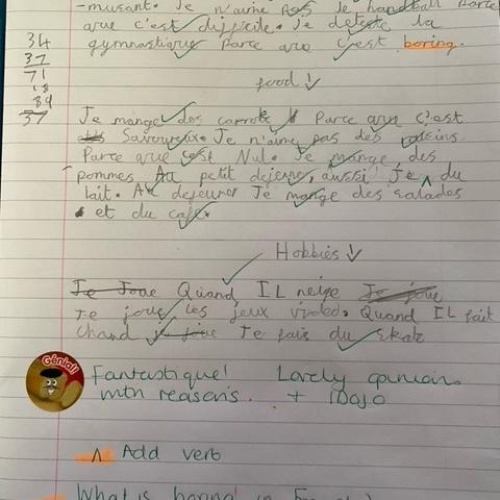 -musant. Je n'aime pas le handball parce
que c'est difficile. Je déteste la
gymnastique parce que c'est boring.
34
37
71
18
39
37
food!
Je mange des carrote Parce que c'est
Savoureux. Je n'aime pas des raisins
Parce que c'est Nul. Je mange des
pommes Au petit dejeuner, aussi Je du
lait. Au dejeuner Je mange des salades
et du café.
Hobbies
Je Joue Quand IL neige Je joue
Je joue les jeux vidéo. Quand IL fait
chaud je joue Je fais du skate
Génial!
Fantastique! Lovely opinions
with reasons. + 1Dojo
^ Add verb
What is boring in